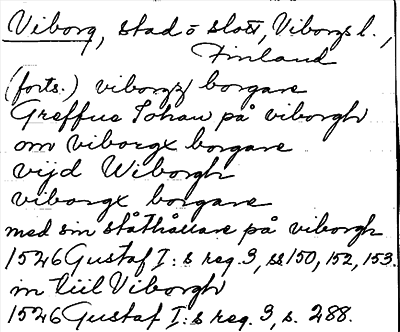 Viborg, stad o slott, Viborgs l.,
Finland
(forts.) viborgx borgare
Greffue Johan på viborgh
om viborgx borgare
vijd Wiborgh
viborgx borgare
med sin ståthållare på viborgh
1526 Gustaf I:s reg. 3, ss 150, 152, 153.
in tiil Viborgh
1526 Gustaf I:s reg. 3, s. 288.